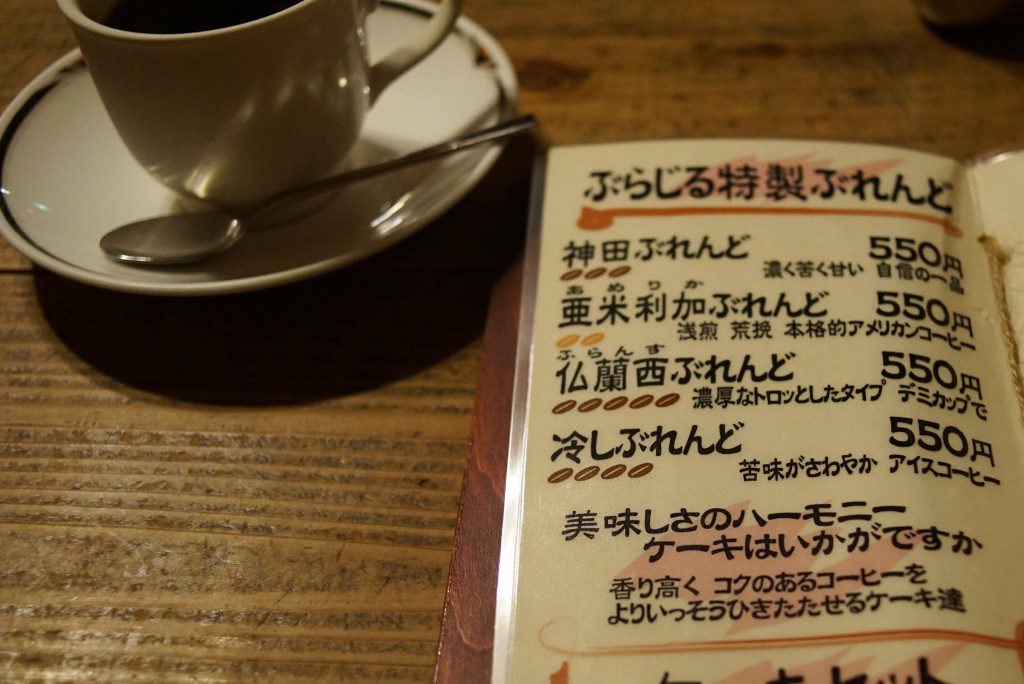 ぶらじる特製ぶれんど
神田ぶれんど 550円
濃く苦く甘い 自信の一品
あめりか
亜米利加ぶれんど 550円
浅煎 荒挽 本格的アメリカンコーヒー
ふらんす
仏蘭西ぶれんど 550円
濃厚なトロッとしたタイプ デミカップで
冷しぶれんど 550円
苦味がさわやか アイスコーヒー
美味しさのハーモニー
ケーキはいかがですか
香り高く コクのあるコーヒーを
よりいっそうひきたたせるケーキ達
ケーキセット